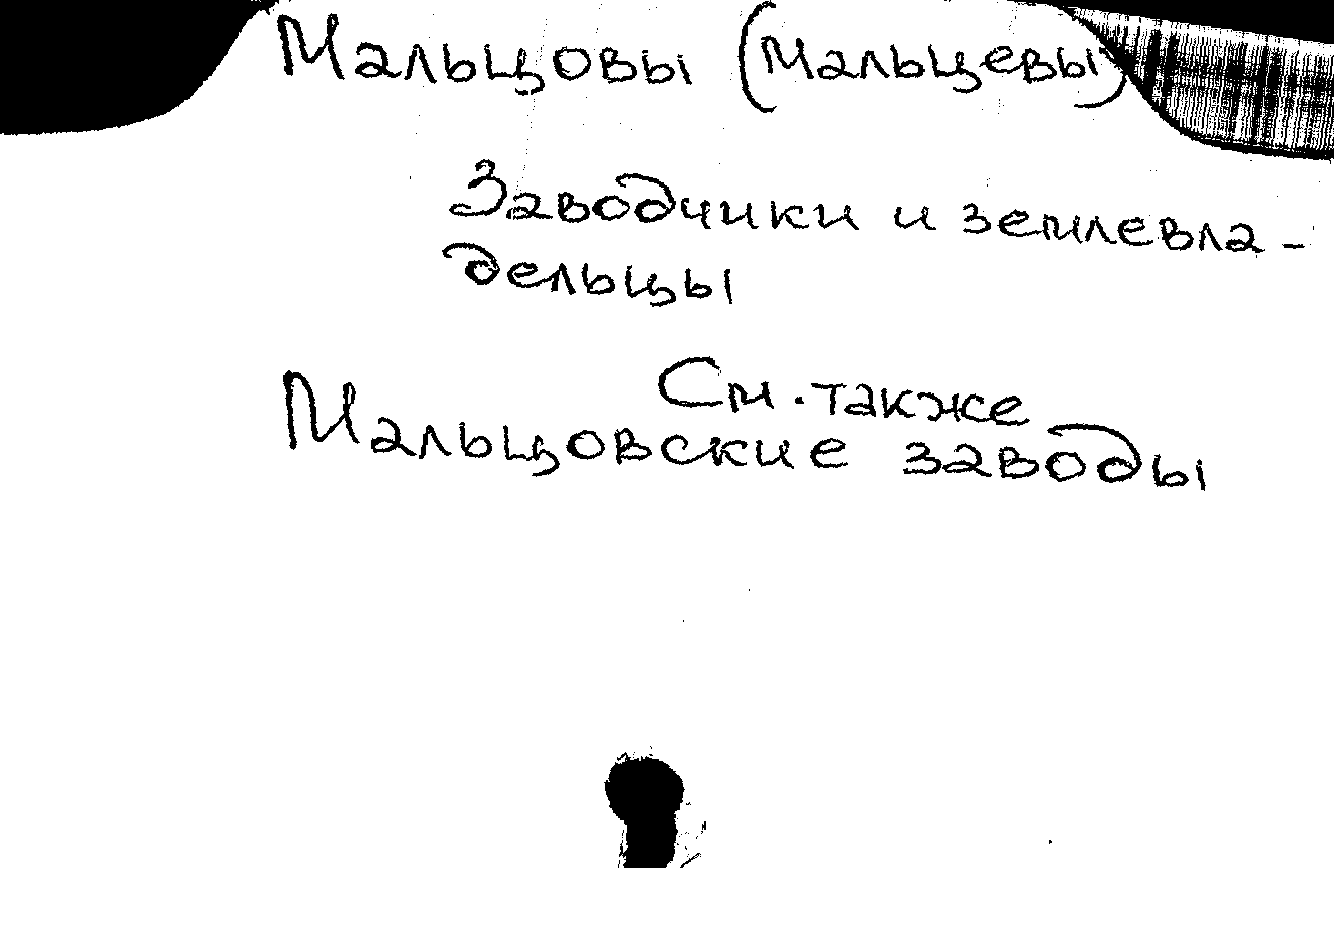 Мальцовы (Мальцевы)
Заводчики и землевла-
дельцы
См. также
Мальцовские заводы